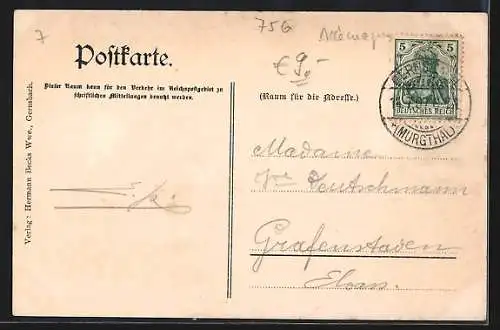 7
75G
Allemagne
€ 9,-
Postkarte.
Dieser Raum kann für den Verkehr im Reichspostgebiet zu
schriftlichen Mitteilungen benutzt werden.
(Raum für die Adresse.)
5 5
DEUTSCHES REICH
(MURGTHAL)
Verlag: Hermann Becks Wwe., Gernsbach.
Madame
Vve Deutschmann
Grafenstaden
Elsass.